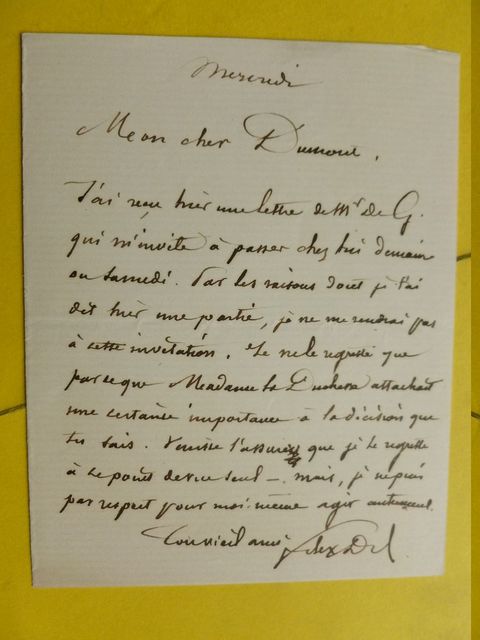 Mercredi
Mon cher Dumont,
J'ai reçu hier une lettre de Mr De G.
qui m'invite à passer chez lui demain
ou samedi. Par les raisons dont je t'ai
dit hier une partie, je ne me rendrai pas
à cette invitation. Je ne le regrette que
parce que Madame la Duchesse attachait
une certaine importance à la décision que
tu sais. Veuille l'assurer que je le regrette
à ce point de vue seul — mais, je ne puis
par respect pour moi-même agir autrement.
Ton vieil ami